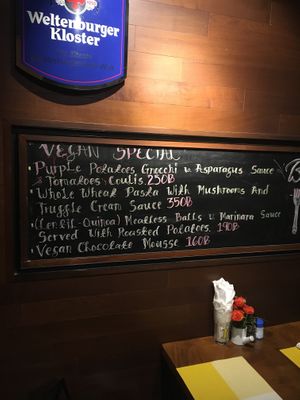 Weltenburger
Kloster
VEGAN SPECIAL
• Purple Potatoes Gnocchi w Asparagus Sauce
& Tomatoes Coulis 250B
• Whole Wheat Pasta With Mushrooms And
Truffle Cream Sauce 350B
• (Lentil-Quinoa) Meatless Balls w Marinara Sauce
Served With Roasted Potatoes. 190B
• Vegan Chocolate Mousse 160B